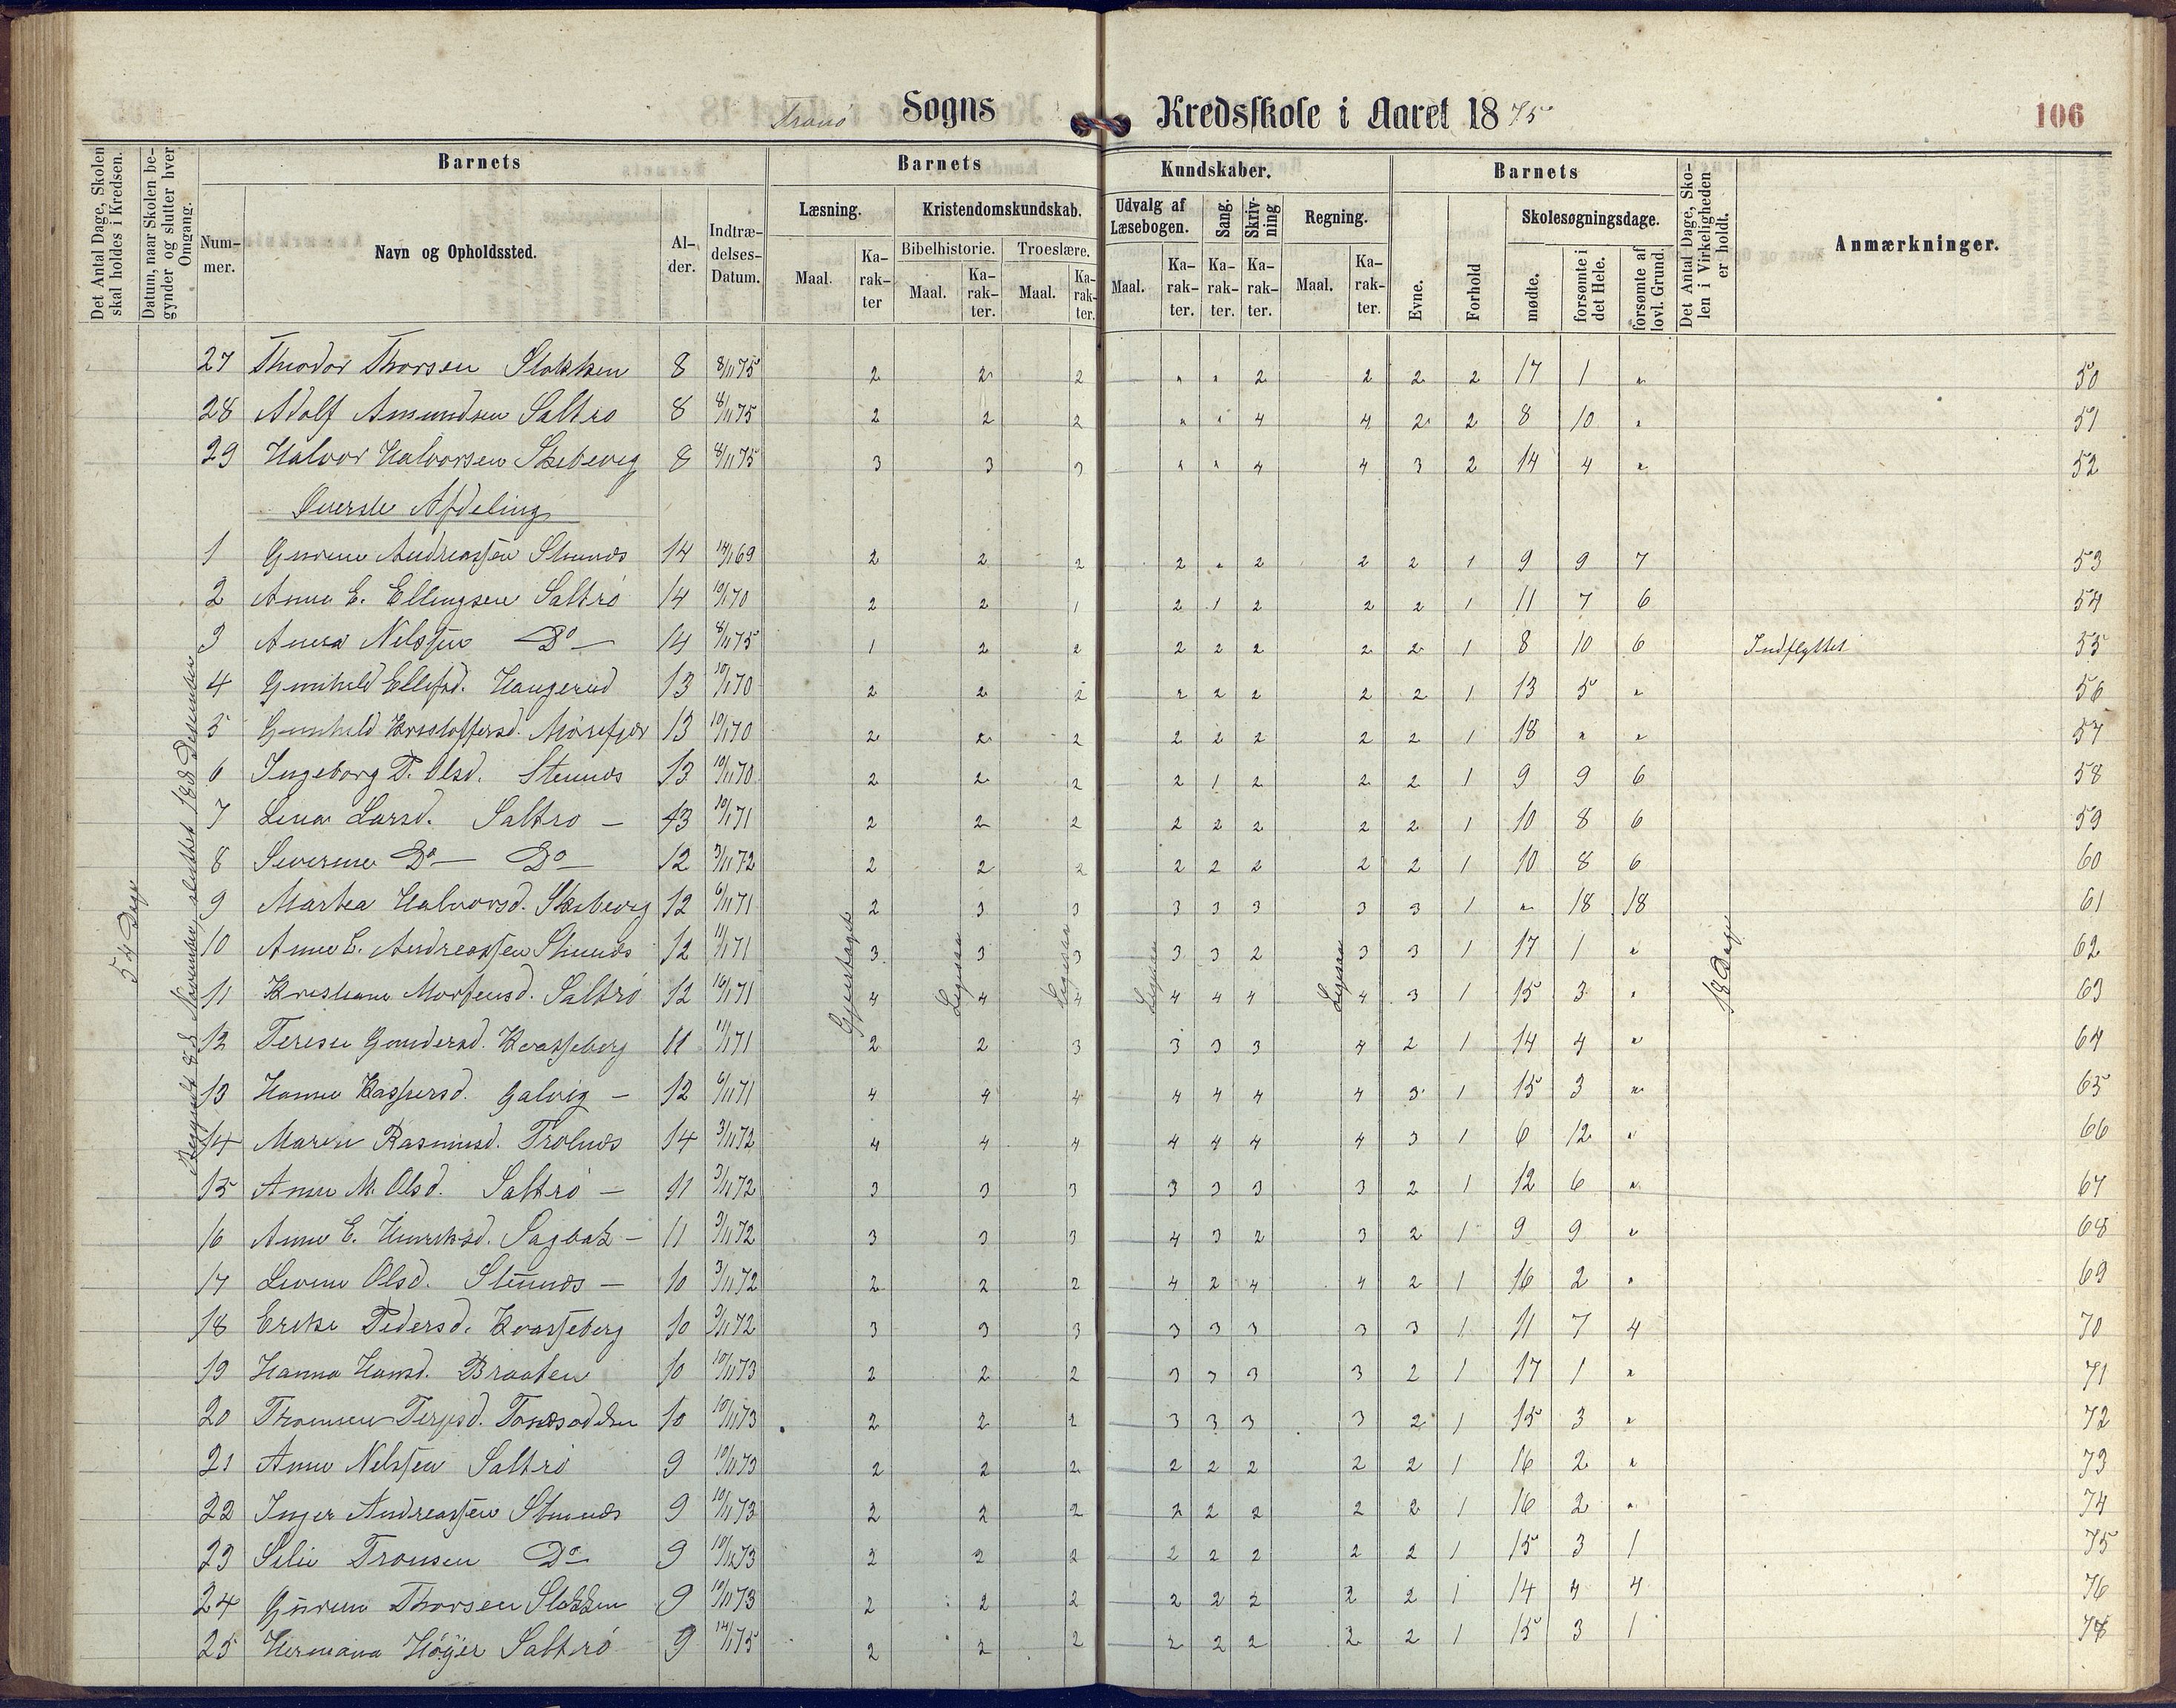 Sogns Kredsskole i Aaret 1875
106
Det Antal Dage, Skolen skal holdes i Kredsen.
Datum, naar Skolen begynder og slutter hver Omgang.
Barnets
Nummer.
Navn og Opholdssted.
Alder.
Indtrædelses-Datum.
Barnets Kundskaber.
Læsning.
Maal. Karakter
Kristendomskundskab.
Bibelhistorie.
Maal. Karakter.
Troeslære.
Maal. Karakter.
Udvalg af Læsebogen.
Maal. Karakter.
Sang.
Karakter.
Skrivning
Karakter.
Regning.
Maal. Karakter.
Barnets
Evne.
Forhold
Skolesøgningsdage.
mødte.
forsømte i det Hele.
forsømte af lovl. Grund.
Det Antal Dage, Skolen i Virkeligheden er holdt.
Anmærkninger.
54 Dage
Begyndt d. 8 November, sluttet 18de December
Gjennemtaget
Ligesaa
Ligesaa
Ligesaa
Ligesaa
18 Dage
27 Theodor Thorsen Stokken 8 8/11 75 2 2 2 " " 2 2 2 2 17 1 " 50
28 Adolf Amundsen Saltrø 8 8/11 75 2 2 2 " " 4 4 2 2 8 10 " 51
29 Halvor Halvorsen Skibevig 8 8/11 75 3 3 3 " " 4 4 3 2 14 4 " 52
Øverste Afdeling
1 Gurine Andreassen Stumnæs 14 14/1 69 2 2 2 2 " 2 2 2 1 9 9 7 53
2 Anne E. Ellingsen Saltrø 14 10/1 70 2 2 1 2 1 2 2 2 1 11 7 6 54
3 Anna Nilssen Do 14 8/11 75 1 2 2 2 2 2 2 2 1 8 10 6 Indflyttet 55
4 Gunhild Ellefsd. Haugerud 13 10/1 70 2 2 2 2 2 2 2 2 1 13 5 " 56
5 Gunhild Kristoffersd. Mørefjær 13 10/1 70 2 2 2 2 2 2 2 2 1 18 " " 57
6 Ingeborg T. Olsd. Stumnæs 13 10/11 70 2 2 2 2 1 2 2 2 1 9 9 6 58
7 Lena Larsd. Saltrø – 13 10/1 71 2 2 2 2 2 2 2 2 1 10 8 6 59
8 Severine Do Do 12 3/11 72 2 2 2 2 2 2 2 2 1 10 8 6 60
9 Martea Halvorsd. Skibevig 12 6/11 71 2 3 3 3 3 3 3 3 1 " 18 18 61
10 Anne E. Andreassen Stumnæs 12 11/1 71 3 3 3 3 3 2 3 3 1 17 1 " 62
11 Kristiane Mortensd. Saltrø 12 16/1 71 4 4 4 4 4 4 4 3 1 15 3 " 63
12 Terese Gundersd. Kvasseberg 11 11/1 71 2 2 3 3 3 3 4 2 1 14 4 " 64
13 Hanne Kaspersd. Galvig – 12 6/11 71 4 4 4 4 4 4 4 3 1 15 3 " 65
14 Maren Rasmusd. Trolnæs 14 3/11 72 4 4 4 4 4 4 4 3 1 6 12 " 66
15 Anne M. Olsd. Saltrø – 11 3/11 72 3 3 3 3 3 3 3 2 1 12 6 " 67
16 Anne E. Henriksd. Sagbak – 11 3/11 72 3 3 3 4 3 2 3 2 1 9 9 " 68
17 Lovine Olsd. Stumnæs – 10 3/11 72 2 2 2 4 2 4 4 2 1 16 2 " 69
18 Erike Pedersd. Kvasseberg 10 3/11 72 3 3 3 3 3 3 3 3 1 11 7 4 70
19 Hanna Hansd. Braaten 10 10/11 73 2 2 2 3 3 3 3 2 1 17 1 " 71
20 Thomine Terjesd. 10 10/11 73 2 2 2 3 3 3 3 2 1 15 3 " 72
21 Anne Nilssen Saltrø 9 10/11 73 2 2 2 2 2 2 2 2 1 16 2 " 73
22 Inger Andreassen Stumnæs 9 10/11 73 2 2 2 2 2 2 2 2 1 16 2 " 74
23 Silie Tronsen Do 9 10/11 73 2 2 2 2 2 2 2 2 1 15 3 1 75
24 Gurine Thorsen Stokken 9 10/11 73 2 2 2 2 2 2 2 2 1 14 4 4 76
25 Hermana Høyer Saltrø 9 14/1 75 2 2 2 2 2 2 2 2 1 15 3 1 77